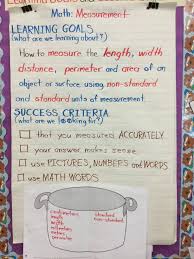 Math: Measurement
LEARNING GOALS
(what are we learning about?)
How to measure the length, width
distance, perimeter and area of an
object or surface using non-standard
and standard units of measurement.
SUCCESS CRITERIA
(what are we looking for?)
that you measure ACCURATELY
your answer makes sense
use PICTURES, NUMBERS and WORDS
use MATH WORDS
centimeters
length
width
millimeters
meters
perimeter
standard
non-standard